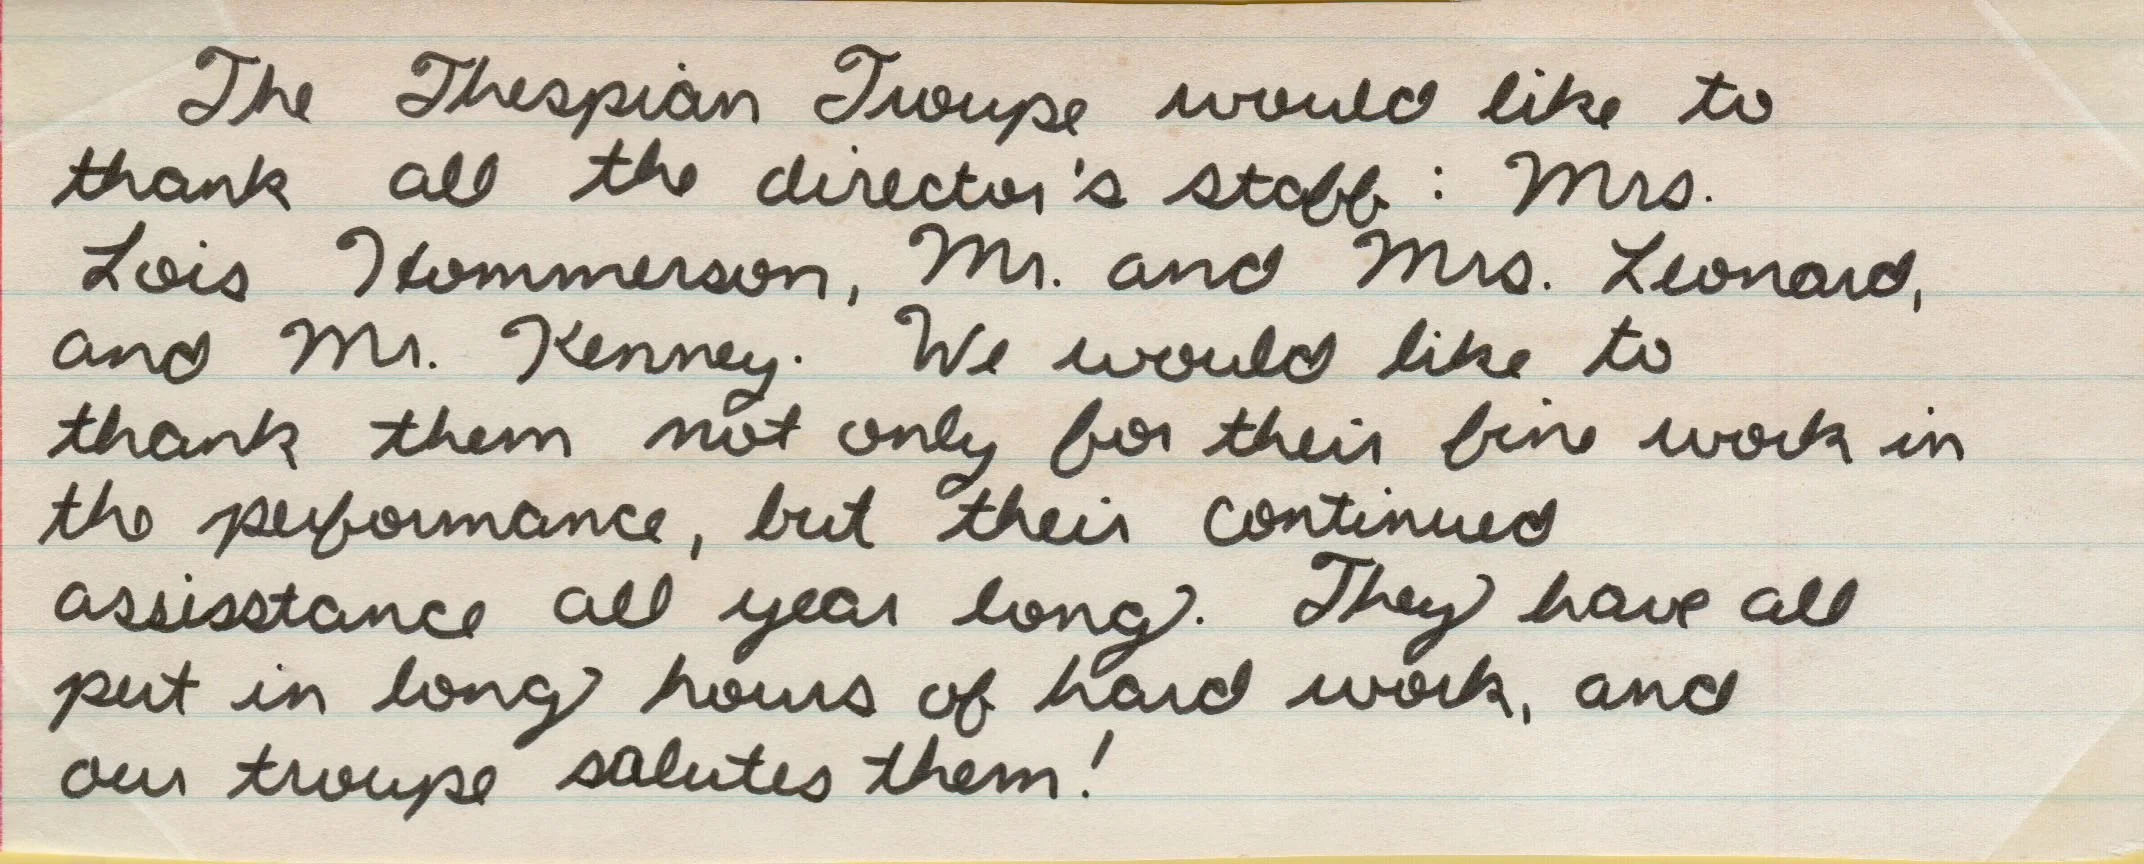 The Thespian Troupe would like to
thank all the director's staff: Mrs.
Lois Hommerson, Mr. and Mrs. Leonard,
and Mr. Kenney. We would like to
thank them not only for their fine work in
the performance, but their continued
assisstance all year long. They have all
put in long hours of hard work, and
our troupe salutes them!